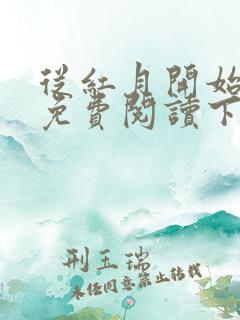 從紅月開始
免費閱讀下
刑玉瑞
未经同意禁止转载